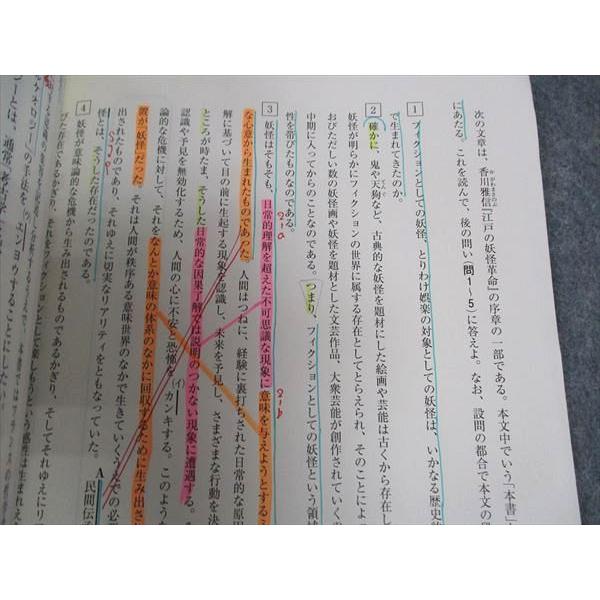 次の文章は、香川雅信『江戸の妖怪革命』の序章の一部である。本文中でいう「本書」
にあたる。これを読んで、後の問い(問1～5)に答えよ。なお、設問の都合で本文の
1 フィクションとしての妖怪、とりわけ娯楽の対象としての妖怪は、いかなる歴史
で生まれてきたのか。
2 確かに、鬼や天狗など、古典的な妖怪を題材にした絵画や芸能は古くから存在し
妖怪が明らかにフィクションの世界に属する存在としてとらえられ、そのことによ
おびただしい数の妖怪画や妖怪を題材とした文芸作品、大衆芸能が創作されていく
中期に入ってからのことなのである。つまり、フィクションとしての妖怪という領
性を帯びたものなのである。
3 妖怪はそもそも、日常的理解を超えた不可思議な現象に意味を与えようとする
な心意から生まれたものであった。人間はつねに、経験に裏打ちされた日常的な原因
解に基づいて目の前に生起する現象を認識し、未来を予見し、さまざまな行動を決
ところが時たま、そうした日常的な因果了解では説明のつかない現象に遭遇する。
認識や予見を無効化するため、人間の心に不安と恐怖を(イ)カンキする。このよう
論的な危機に対して、それをなんとか意味の体系のなかに回収するために生み出さ
置が「妖怪」だった。それは人間が秩序ある意味世界のなかで生きていくうえでの必
出されたものであり、それゆえに切実なリアリティをともなっていた。A民間伝
怪とは、そうした存在だったのである。
4 妖怪が意味論的な危機から生み出されるものであるかぎり、そしてそれゆえにリ
びた存在であるかぎり、それをフィクションとして楽しもうという感性は生まれえ